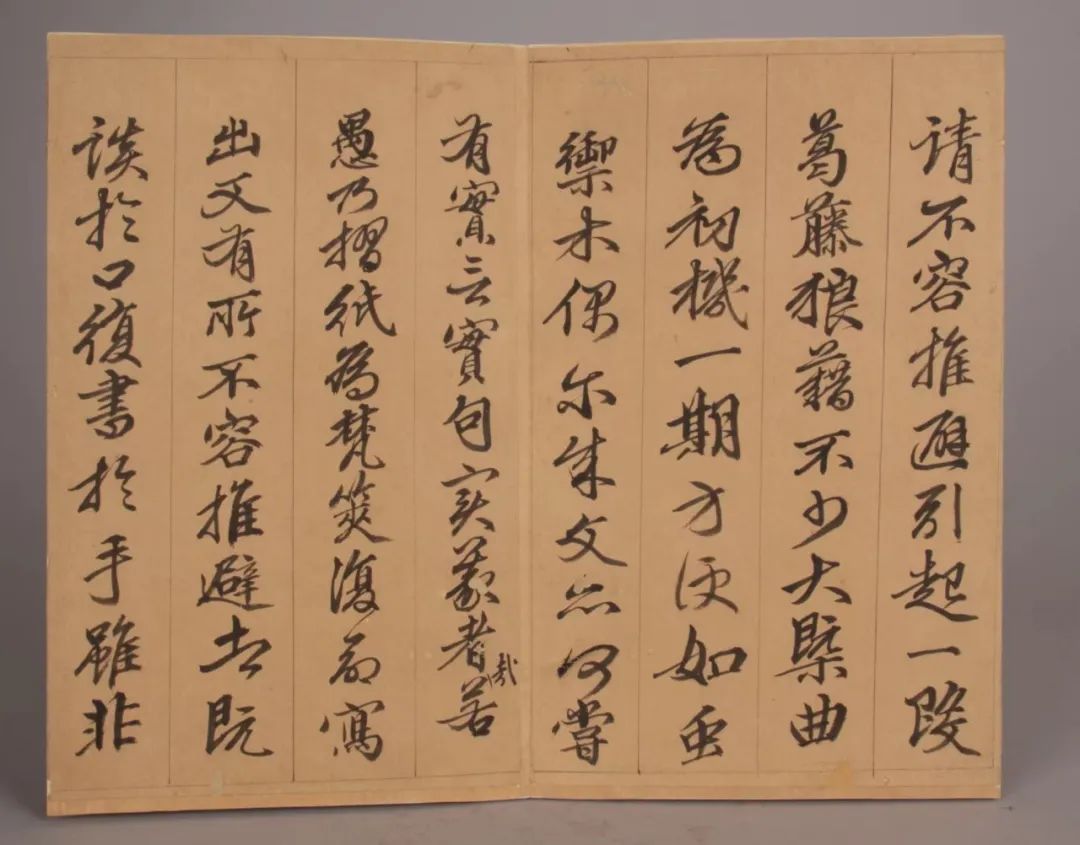 请不容推避引起一段
葛藤狼藉不少大槩曲
為初機一期方便如虫
禦木偶尔成文亦何嘗
有實云實句实義者哉若
愚乃摺紙為梵筴復命寫
出又有所不容推避者既
談於口復書於手雖非